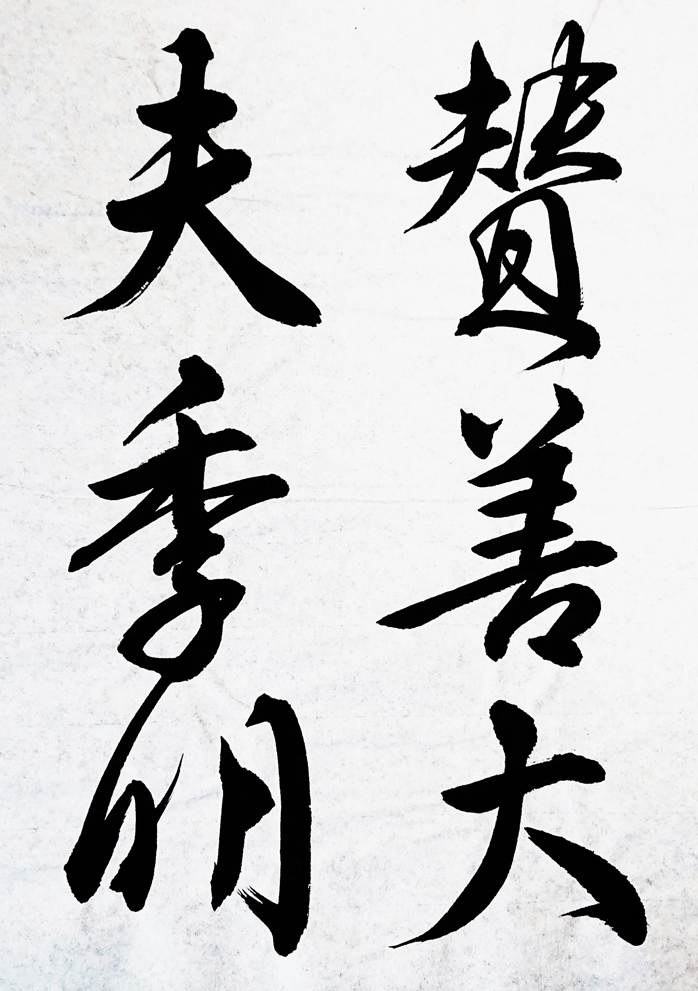 賛善大
夫季明